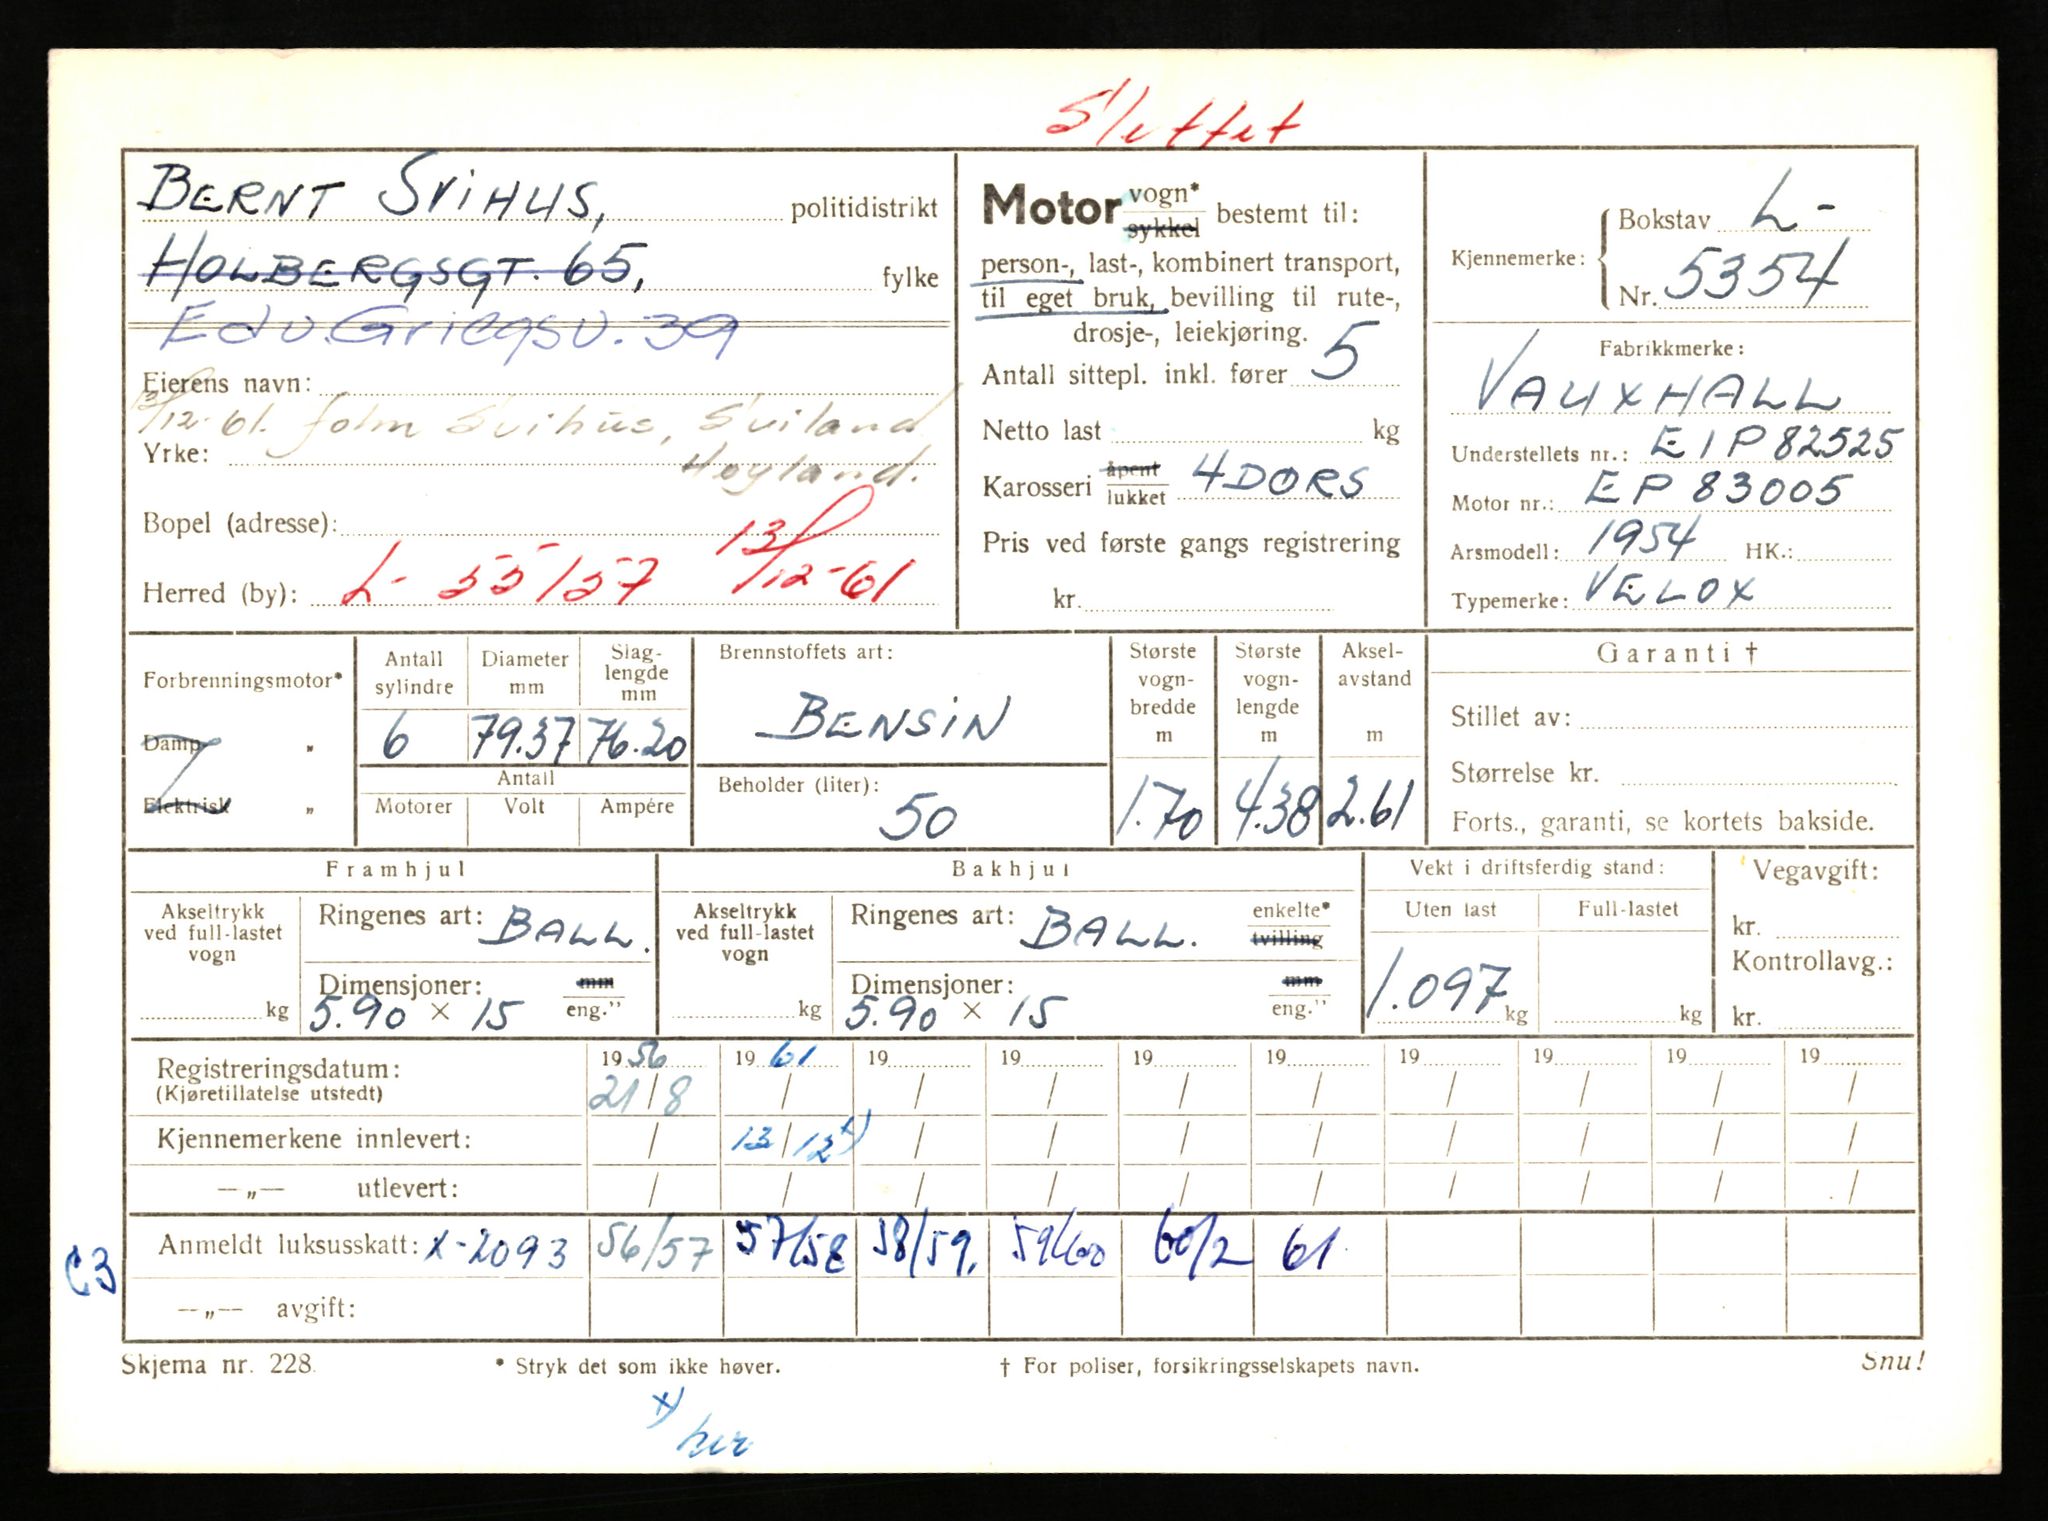 Slettet
BERNT SVIHUS, politidistrikt
HOLBERGSGT. 65, fylke
Edv. Griegsv. 39
Eierens navn:
13/12-61. John Svihus, Sviland
Yrke: Høyland.
Bopel (adresse):
Herred (by): L- 55157 13/12-61
Motor vogn* sykkel bestemt til:
person-, last-, kombinert transport,
til eget bruk, bevilling til rute-,
drosje-, leiekjøring.
Antall sittepl. inkl. fører 5
Netto last kg
Karosseri åpent lukket 4 DØRS
Pris ved første gangs registrering
kr.
Kjennemerke: Bokstav L-
Nr. 5354
Fabrikkmerke:
VAUXHALL
Understellets nr.: EIP 82525
Motor nr.: EP 83005
Årsmodell: 1954 HK.:
Typemerke: VELOX
Forbrenningsmotor*
Damp „
Elektrisk „
Antall sylindre 6
Diameter mm 79.37
Slaglengde mm 76.20
Antall
Motorer Volt Ampére
Brennstoffets art:
BENSIN
Beholder (liter):
50
Største vogn-bredde m 1.70
Største vogn-lengde m 4.38
Aksel-avstand m 2.61
Garanti †
Stillet av:
Størrelse kr.
Forts., garanti, se kortets bakside.
Framhjul
Akseltrykk ved full-lastet vogn kg
Ringenes art: BALL.
Dimensjoner: mm eng."
5.90 × 15
Bakhjul
Akseltrykk ved full-lastet vogn kg
Ringenes art: BALL. enkelte* tvilling
Dimensjoner: mm eng."
5.90 × 15
Vekt i driftsferdig stand:
Uten last Full-lastet
1.097 kg kg
Vegavgift:
kr.
Kontrollavg.:
kr.
Registreringsdatum: 1956 1961 19 19 19 19 19 19 19 19
(Kjøretillatelse utstedt) 21/8 / / / / / / / / /
Kjennemerkene innlevert: / 13/12 x) / / / / / / / /
—„— utlevert: / / / / / / / / / /
C3 Anmeldt luksusskatt: X-2093 56/57 57/58 58/59. 59/60 60/2 61
—„— avgift:
Skjema nr. 228. * Stryk det som ikke høver. † For poliser, forsikringsselskapets navn. Snu!
x)
her